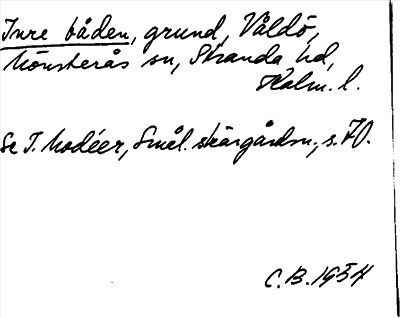 Inre båden, grund, Våldö,
Mönsterås sn, Stranda hd,
Kalm. l.
Se I. Modéer, Smål. skärgårdsn., s. 70.
C.B. 1954